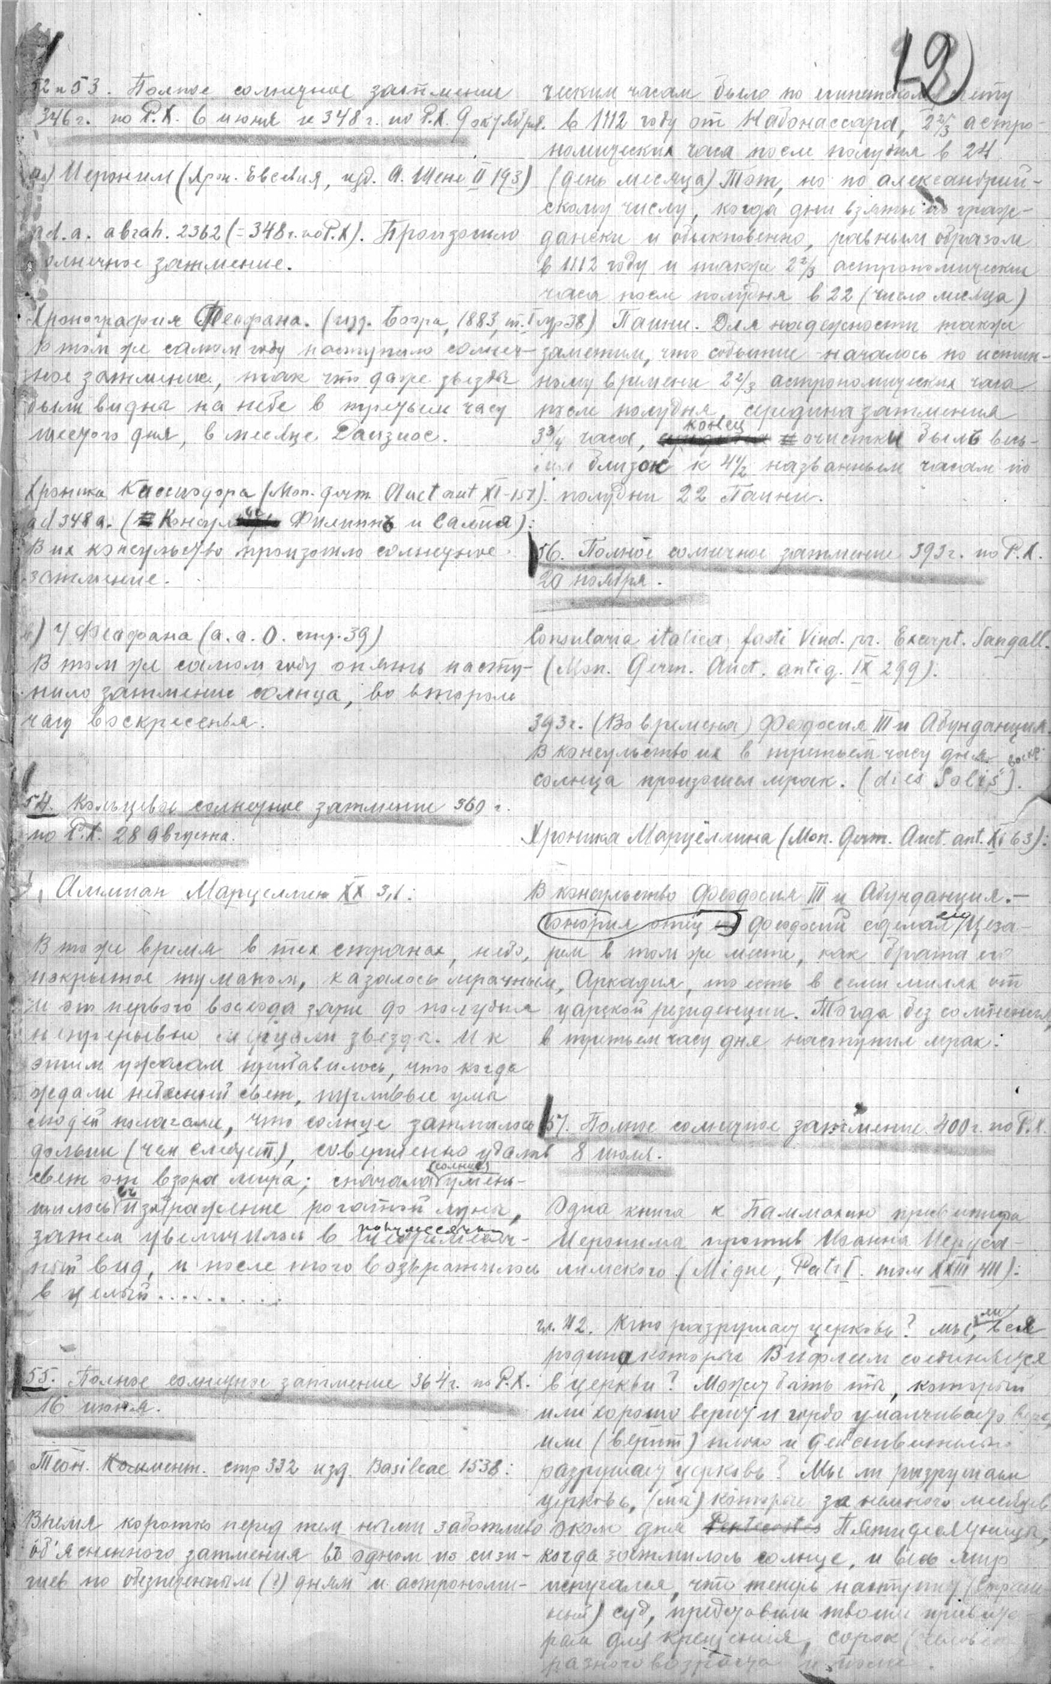 12)
52 и 53. Полное солнечное затмение
346 г. по Р.Х. 6 июня и 348 г. по Р.Х. 9 октября.
а) Иероним (Хрон. Евсевия, изд. А. Шене II 193)
ad. a. abrah. 2362 (= 348 г. по Р.Х). Произошло
солнечное затмение.
Хронография Феофана. (изд. Боора, 1883, т. I стр 38)
В том же самом году наступило солнеч-
ное затмение, так что даже звезды
были видны на небе в третьем часу
шестого дня, в месяце Даизиос.
Хроника Кассиодора (Mon. germ. Auct ant XI-151)
ad 348 a. (Консулы Филипп и Салия):
В их консульство произошло солнечное
затмение.
в) У Феофана (a. a. O. стр. 39)
В том же самом году опять насту-
пило затмение солнца, во втором
часу воскресенья.
54. Кольцевое солнечное затмение 360 г.
по Р.Х. 28 августа.
Аммиан Марцеллин XX 3,1:
В то же время в тех странах, небо,
покрытое туманом, казалось мрачным,
и от первого восхода зари до полудня
непрерывно мерцали звезды. И к
этим ужасам прибавилось, что когда
ждали небесный свет, пугливые умы
людей полагали, что солнце затмилось
дольше (чем следует), совершенно удалив
свет от взора мира; сначала (солнце) умень-
шилось в изображение рогатой луны,
затем увеличилось в полумесяч-
ный вид, и после того возвратилось
в целый.........
55. Полное солнечное затмение 364 г. по Р.Х.
16 июня.
Теон. Коммент. стр 332 изд. Basileae 1538:
Время коротко перед тем нами заботливо
об'ясненного затмения в одном по сизи-
гиев по (?) дням и астрономи-
ческим часам было по египетскому счету
в 1112 году от Набонассара, 2 2/3 астро-
номических часа после полудня в 24
(день месяца) Тот, но по александрий-
скому числу, когда дни взяты граж-
дански и обыкновенно, равным образом
в 1112 году и также 2 2/3 астрономических
часа после полудня в 22 (число месяца)
Паини. Для надежности также
заметим, что событие началось по истин-
ному времени 2 2/3 астрономических часа
после полудня, середина затмения
3 3/4 часа, конец очистки был весь-
ма близок к 4 1/2 названным часам по
полудни 22 Паини.
56. Полное солнечное затмение 393 г. по Р.Х.
20 ноября.
Consularia italica, fasti Vind. pr. Excerpt. Sangall.
(Mon. Germ. Auct. antiq. IX 299).
393 г. (Во времена) Феодосия III и Абунданция.
В консульство их в третьем часу дня
солнца произошел мрак. (dies Solis).
Хроника Марцеллина (Mon. Germ. Auct. ant. XI 63):
В консульство Феодосия III и Абунданция. —
Гонория отец Феодосий сделал его Цеза-
рем в том же месте, как брата его
Аркадия, то есть в семи милях от
царской резиденции. Тогда без сомнения
в третьем часу дня наступил мрак:
57. Полное солнечное затмение 400 г. по Р.Х.
8 июля.
Одна книга к Паммахию пресвитера
Иеронима против Иоанна Иеруса-
лимского (Migne, Patr. том XXIII):
гл. 42. Кто разрушает церковь? мы ли, вся
родина которых Вифлеем соединяется
в церкви? Может быть ты, который
или хорошо веришь и гордо умалчиваешь
или (веришь) плохо и действительно
разрушаешь церковь? Мы ли разрушаем
церковь, (мы) которые за немного месяцев
около дня Пятидесятницы,
когда затмилось солнце, и весь мир
испугался, что теперь наступит (страш-
ный) суд, представили твоим пресвите-
рам для крещения, сорок (человек)
разного возраста и пола.